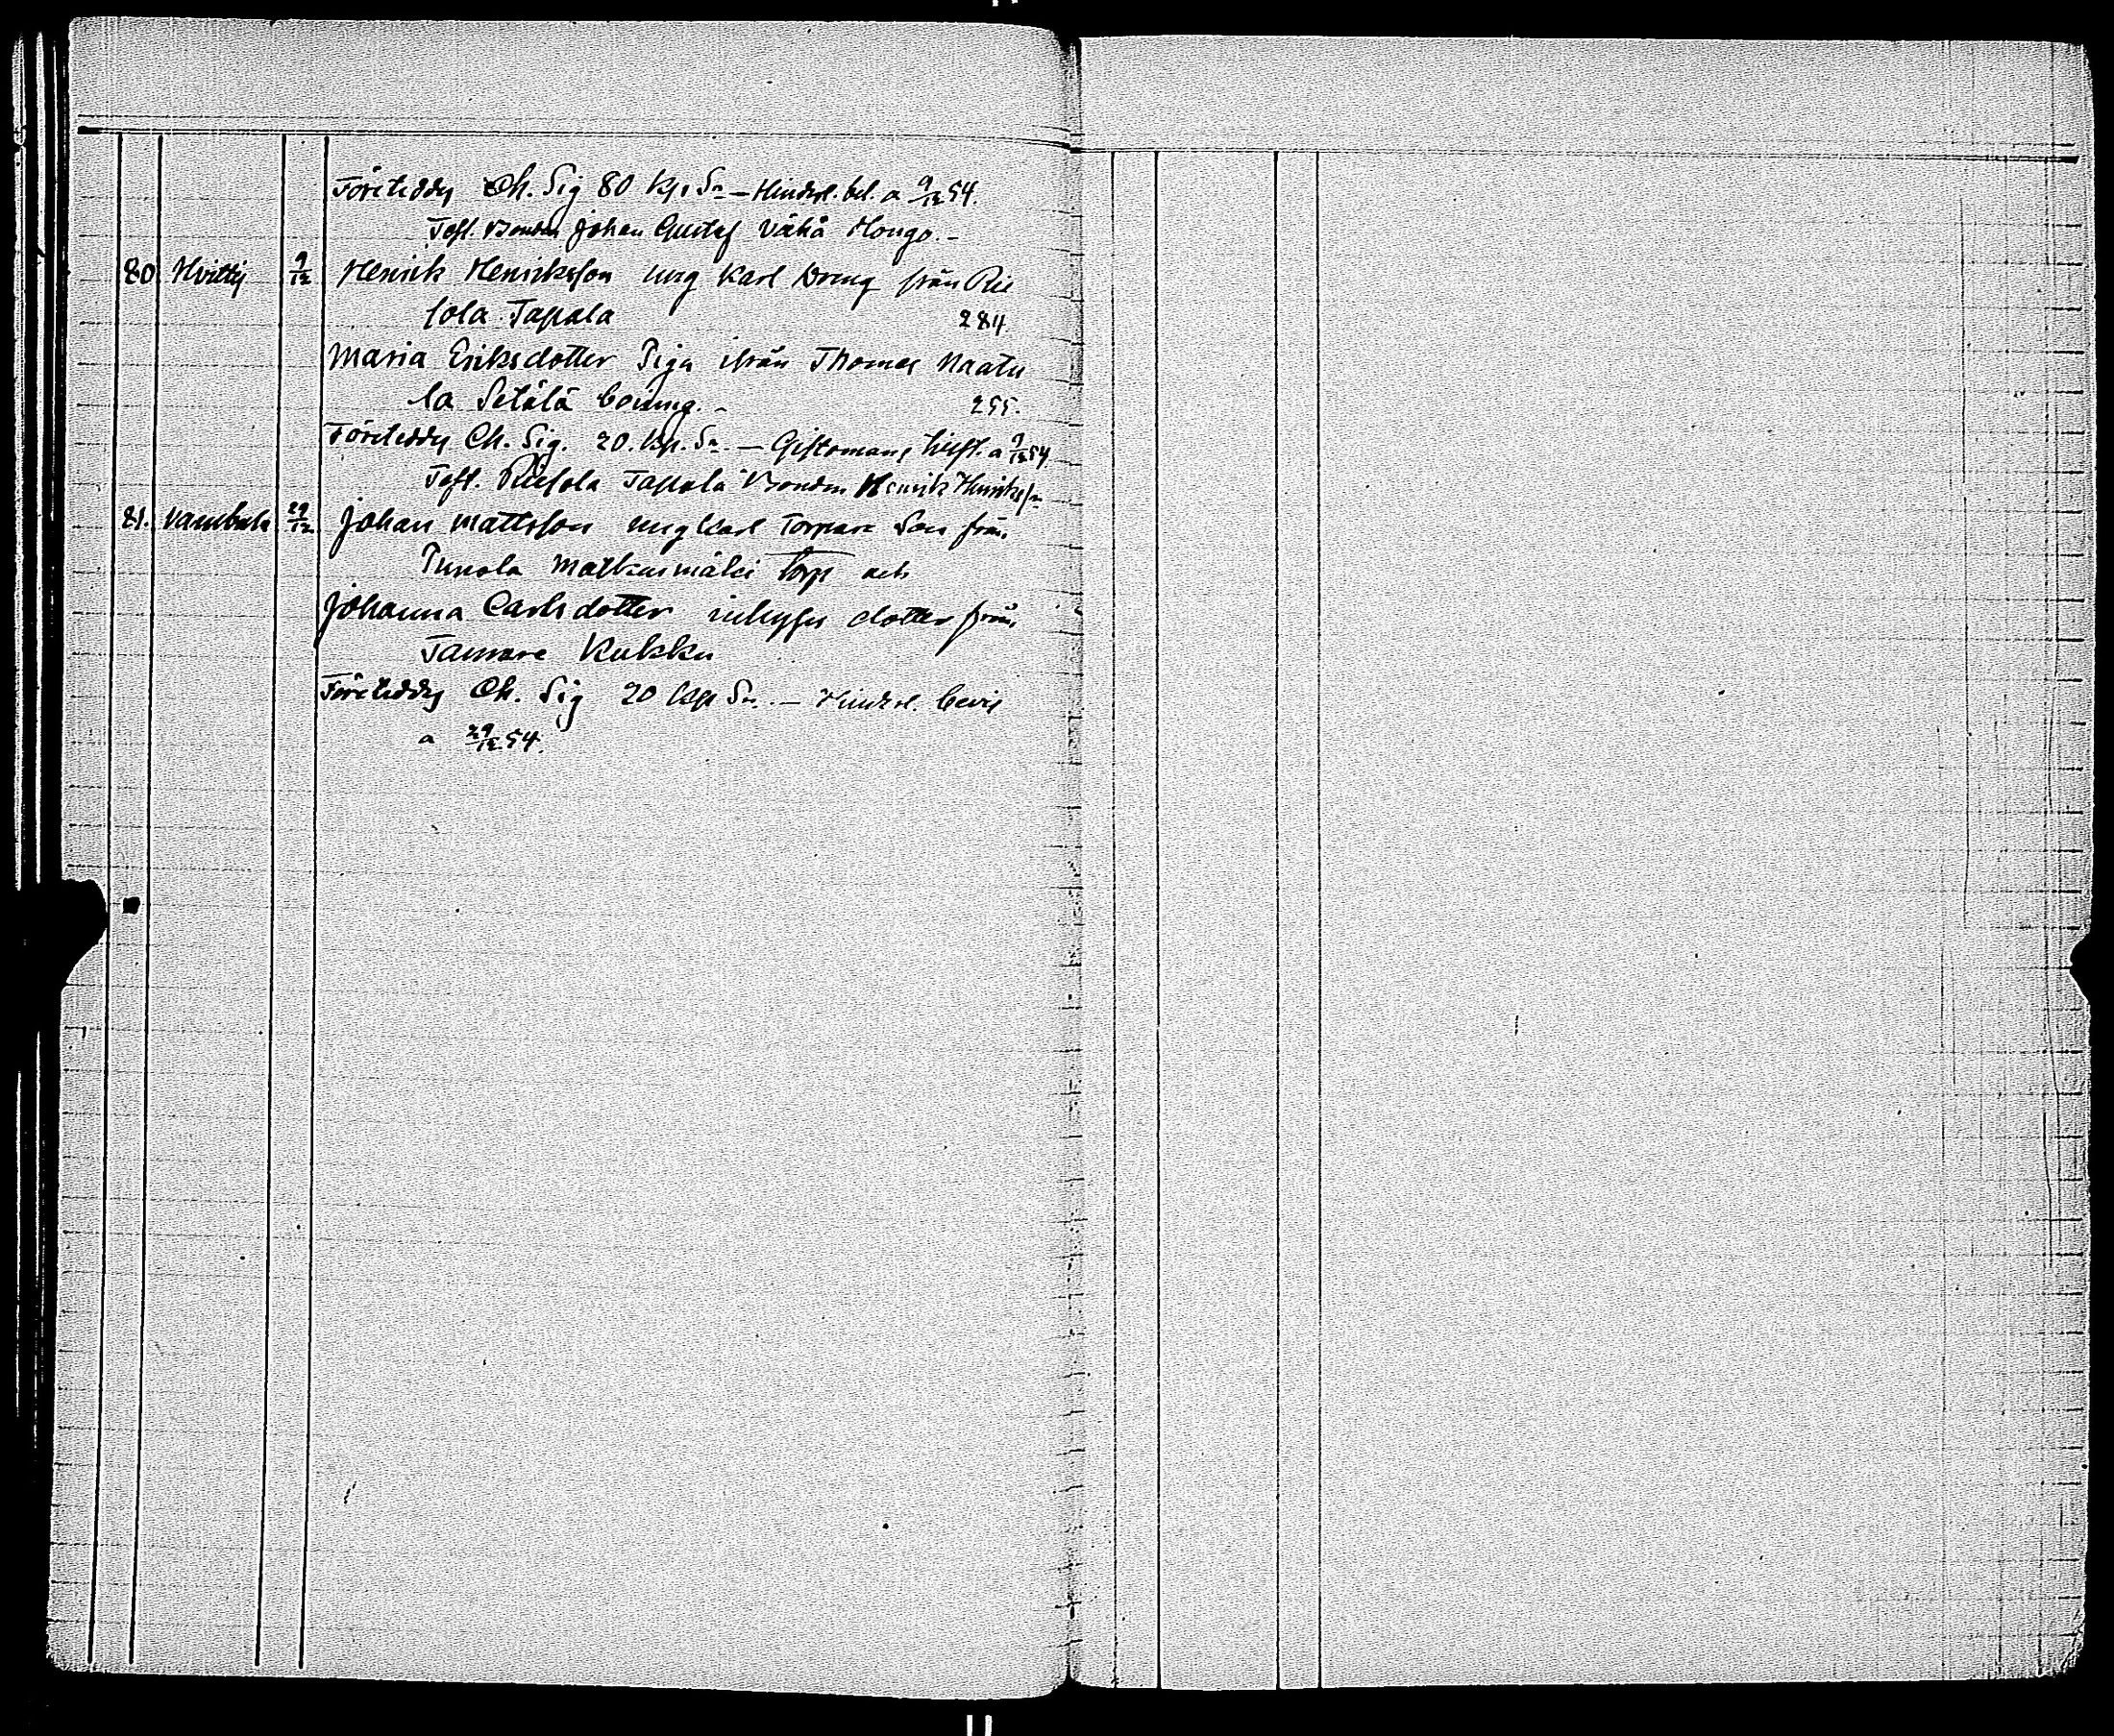 Företeddes Ch. Sig 80 kp. Sr — Hinderl. bet. a 9/12 54.
Test. Bonden Johan Gustaf Vähä Hongo. –
80 Hvittis 9/12 Henrik Henriksson ung Karl Dreng från Rie
sola Tapala 284
Maria Eriksdotter Piga ifrån Thomas Naatu
la Setälä 255.
Företeddes Ch. Sig. 20. kp. Sr. — Giftomans a 9/12 54
Test. Riesola Tapala Bonden Henrik Henriksson
81. Vambula 29/12 Johan Mattsson ung Karl Torpare Son från
Punola Matkusmäki Torp och
Johanna Carlsdotter inhyses dotter från
Tamare Kukku
Företeddes Ch. Sig 20 kop Sr. — Hinderl. bevis
a 29/12 54.